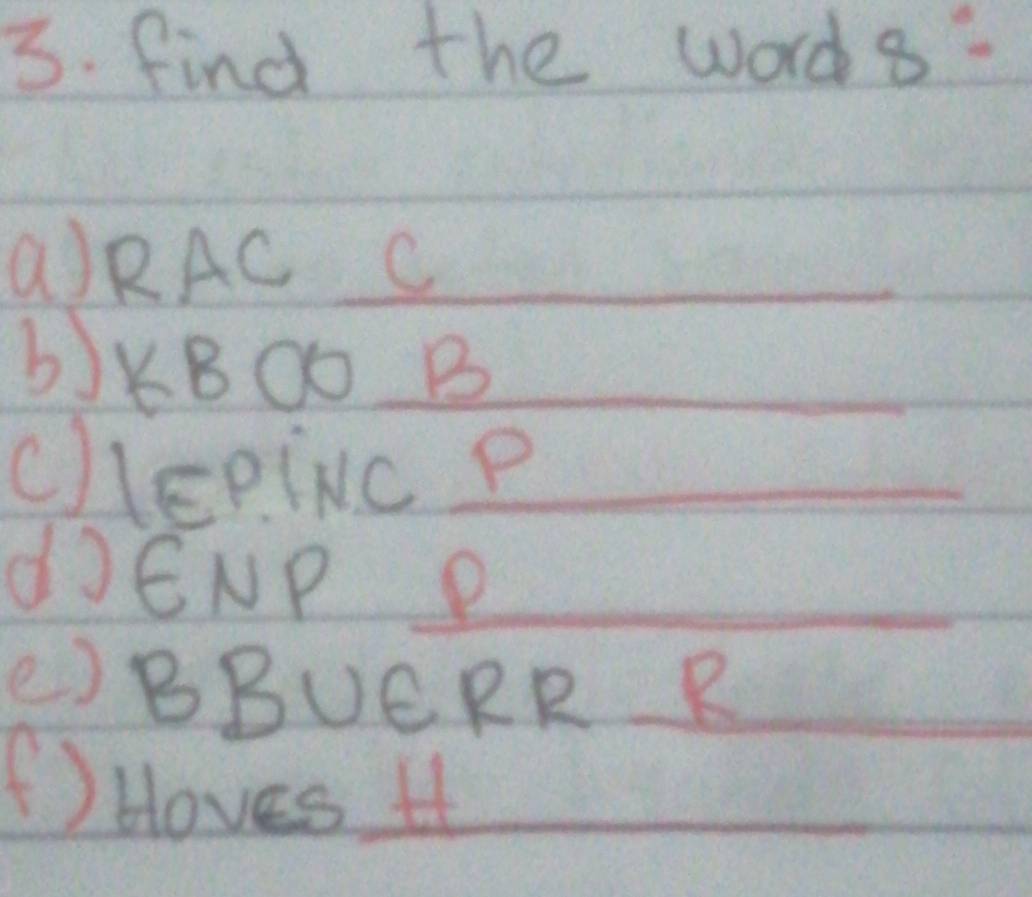 3. find the words:
a) RAC C
b) KBOO B
c) lEPiNC P
d) ENP P
e) BBUERR R
f) HOVES H